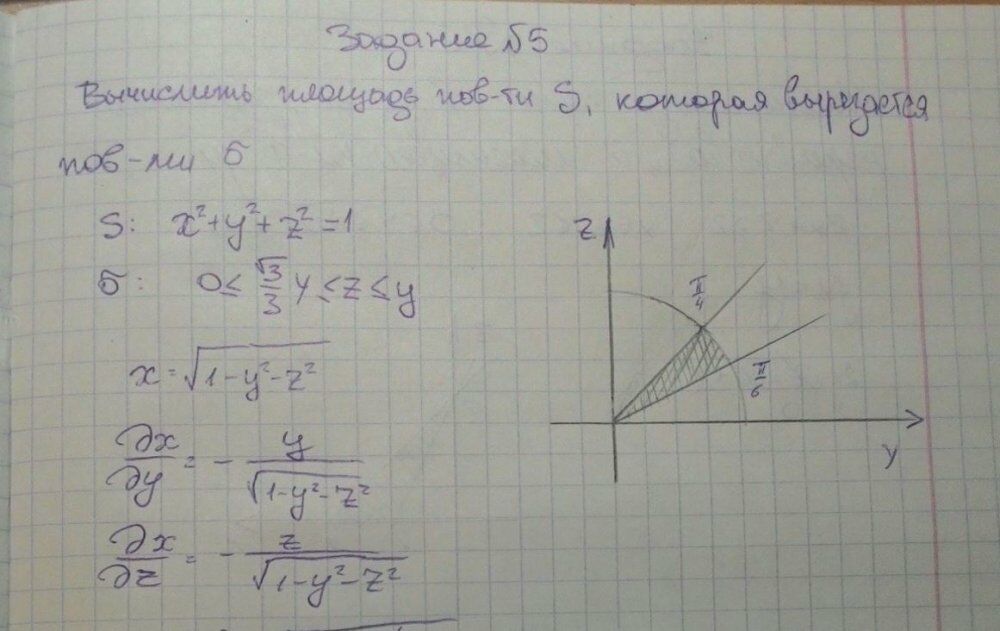 Задание №5
Вычислить площадь пов-ти S, которая вырезается
пов-ми б
S: x²+y²+z²=1
б: 0≤ √3/3 y ≤z ≤y
x = √(1-y²-z²)
∂x/∂y = - y/√(1-y²-z²)
∂x/∂z = - z/√(1-y²-z²)
z
π/4
π/6
y